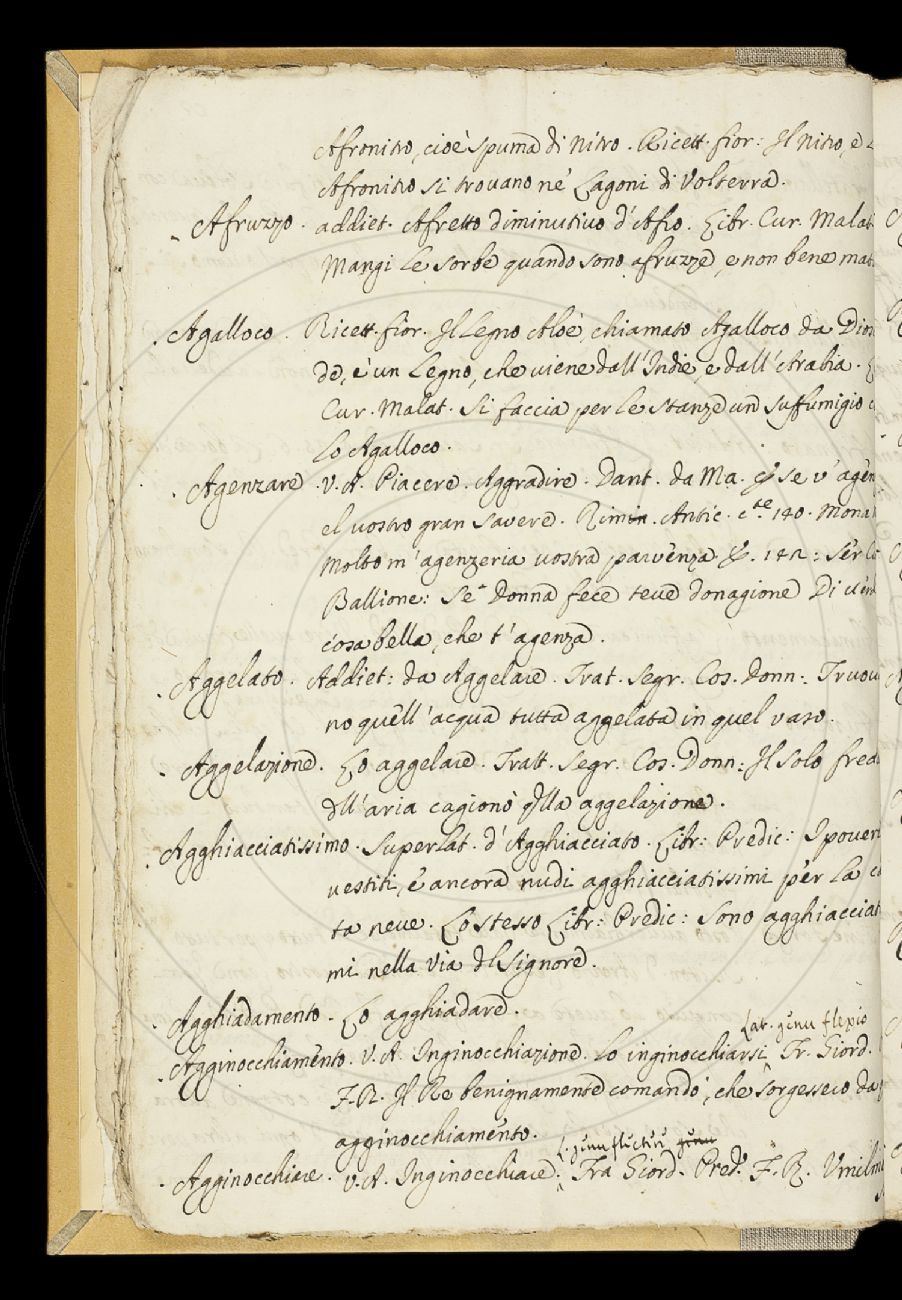 Afronitro, cioè spuma di Nitro. Ricett. fior: Il Nitro, e
Afronitro si trovano ne' Lagoni di Volterra.
Afruzzo. addiet. Afretto diminutivo d'Afro. Libr. Cur. Malat
Mangi le sorbe quando sono afruzze, e non bene mat
Agalloco. Ricett. fior. Il Legno Aloè, chiamato Agalloco da Dios
de, è un Legno, che viene dall'Indie, e dall'Arabia.
Cur. Malat. Si faccia per le stanze un suffumigio
Lo Agalloco.
Agenzare. V.A. Piacere. Aggradire. Dant. da Ma. se v'agen
el vostro gran savere. Rimin. Antic. cte. 140. Mona
Molto m'agenzeria vostra parvenza &. 142: Ser
Ballione: Se Donna fece teve donagione Di
cosa bella, che t'agenza.
Aggelato. Addiet: da Aggelare. Trat. Segr. Cos. Donn: Truov
no quell'acqua tutta aggelata in quel vaso.
Aggelazione. Lo aggelare. Tratt. Segr. Cos. Donn: Il solo fred
dll'aria cagionò qlla aggelazione.
Agghiacciatissimo. Superlat. d'Agghiacciato. Libr: Predic: I pover
vestiti, e ancora nudi agghiacciatissimi per la
ta neve. Lo stesso Libr: Predic: Sono agghiacciat
mi nella via dl Signore.
Agghiadamento. Lo agghiadare.
Lat. genu flexio
Agginocchiamento. V.A. Inginocchiazione. Lo inginocchiarsi Fr. Giord.
F.R. Il Re benignamente comandò, che sorgessero da
agginocchiamento.
L. genu flectere genu
Agginocchiare. V.A. Inginocchiare: Fra Giord. Pred. F.R. Umilm